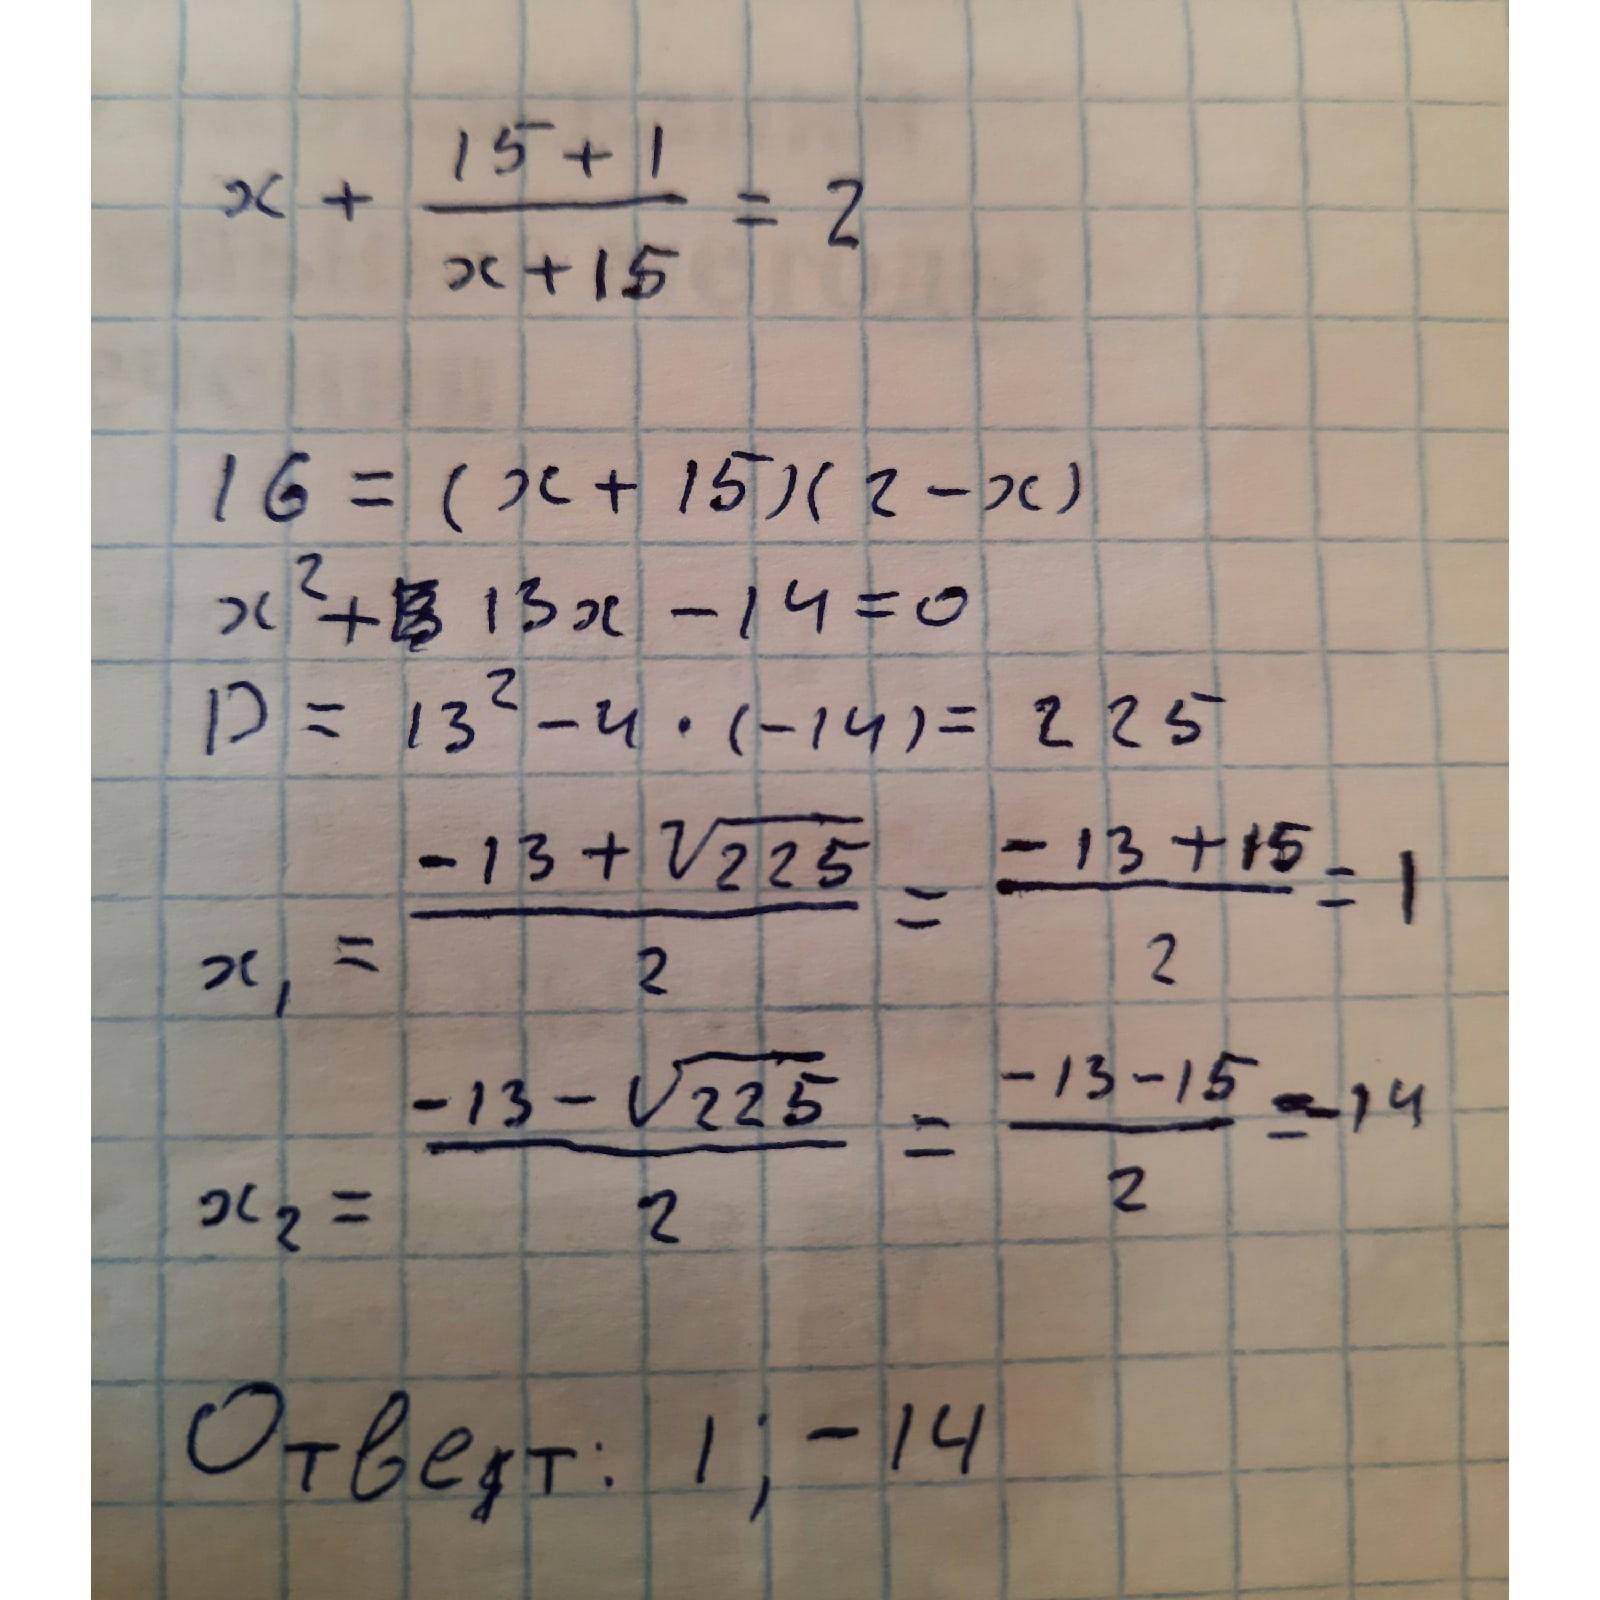 x + (15 + 1)/(x + 15) = 2
16 = (x + 15)(2 - x)
x² + 13x - 14 = 0
D = 13² - 4 · (-14) = 225
x₁ = (-13 + √225)/2 = (-13 + 15)/2 = 1
x₂ = (-13 - √225)/2 = (-13 - 15)/2 = -14
Ответ: 1; -14